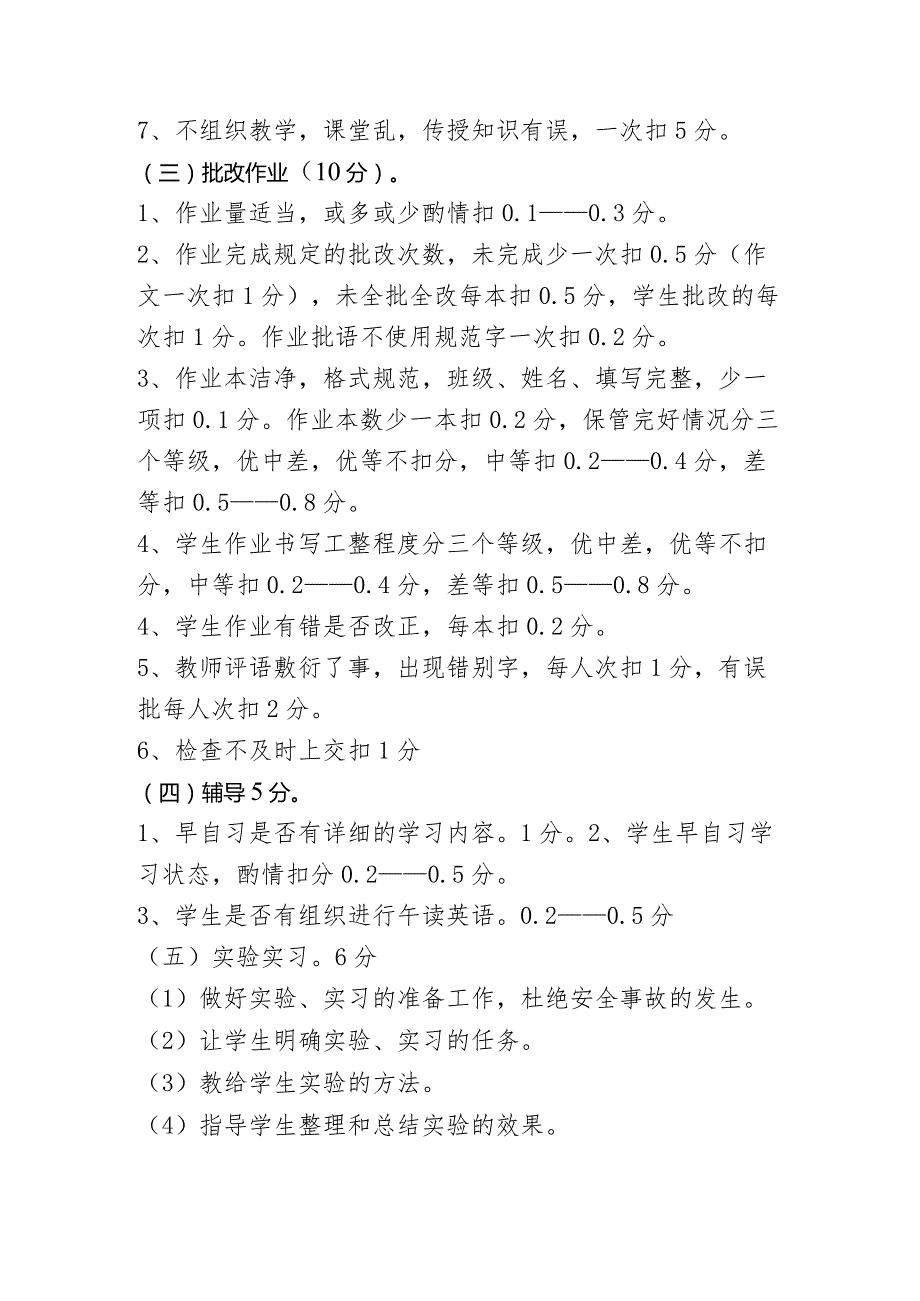 7、不组织教学，课堂乱，传授知识有误，一次扣5分。
（三）批改作业（10分）。
1、作业量适当，或多或少酌情扣0.1——0.3分。
2、作业完成规定的批改次数，未完成少一次扣0.5分（作
文一次扣1分），未全批全改每本扣0.5分，学生批改的每
次扣1分。作业批语不使用规范字一次扣0.2分。
3、作业本洁净，格式规范，班级、姓名、填写完整，少一
项扣0.1分。作业本数少一本扣0.2分，保管完好情况分三
个等级，优中差，优等不扣分，中等扣0.2——0.4分，差
等扣0.5——0.8分。
4、学生作业书写工整程度分三个等级，优中差，优等不扣
分，中等扣0.2——0.4分，差等扣0.5——0.8分。
4、学生作业有错是否改正，每本扣0.2分。
5、教师评语敷衍了事，出现错别字，每人次扣1分，有误
批每人次扣2分。
6、检查不及时上交扣1分
（四）辅导5分。
1、早自习是否有详细的学习内容。1分。2、学生早自习学
习状态，酌情扣分0.2——0.5分。
3、学生是否有组织进行午读英语。0.2——0.5分
（五）实验实习。6分
（1）做好实验、实习的准备工作，杜绝安全事故的发生。
（2）让学生明确实验、实习的任务。
（3）教给学生实验的方法。
（4）指导学生整理和总结实验的效果。